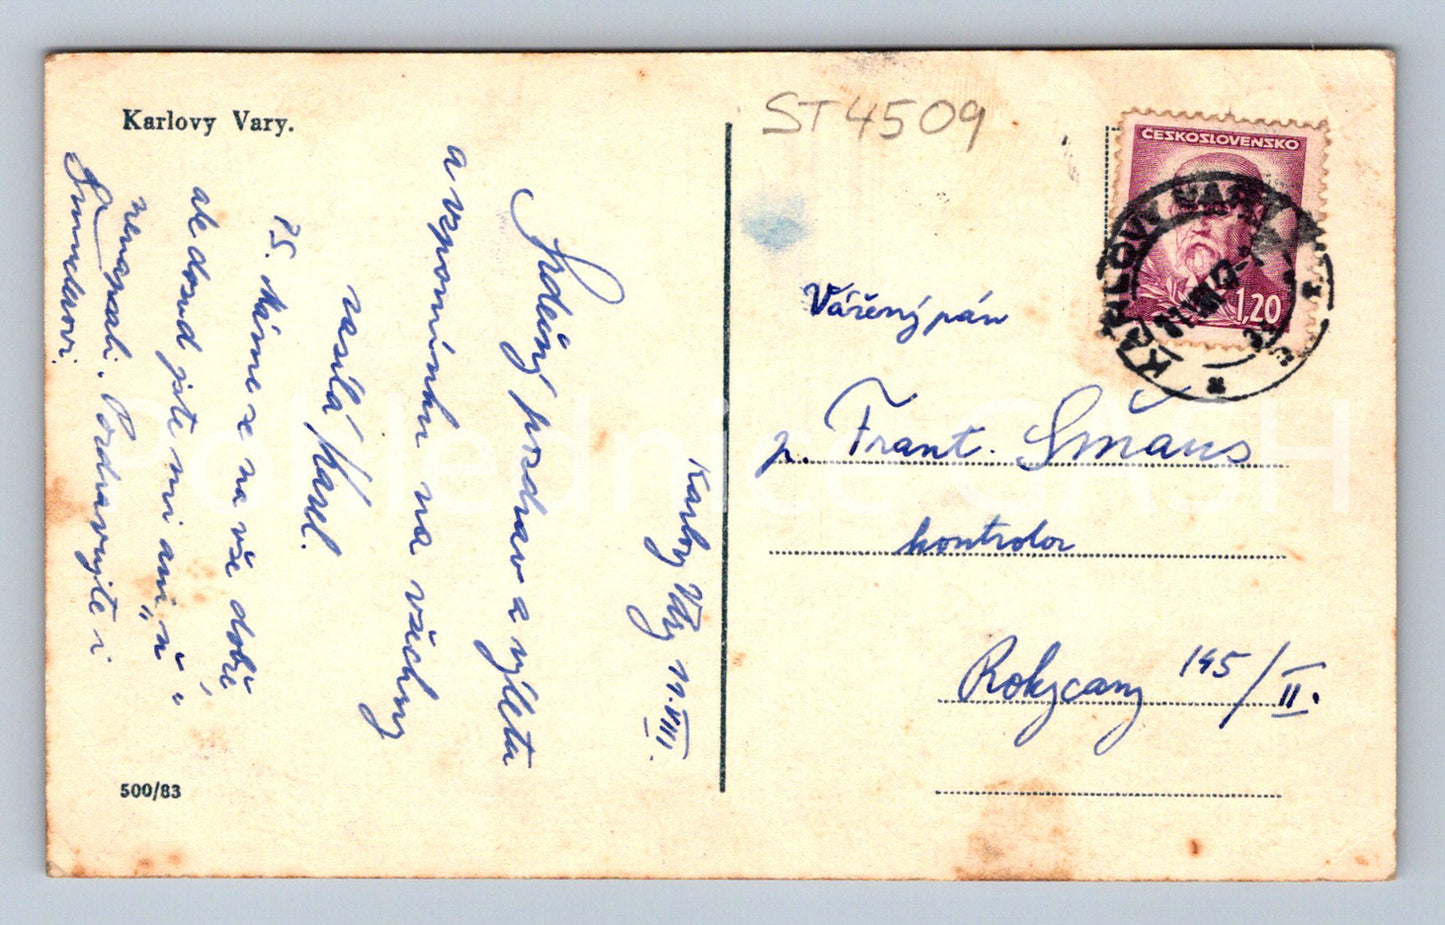 Karlovy Vary.
Karlovy Vary 11.VIII.
Srdečný pozdrav z výletu
a vzpomínku na všechny
zasílá Karel.
PS. Máme se na vše dobře
ale dosud jste mi ani „ň“
nenapsali. Pozdravujte i
Šmuclerovi.
500/83
ST4509
ČESKOSLOVENSKO
1,20
KARLOVY VARY
Vážený pán
p. Frant. Smaus
kontrolor
Rokycany 195/II.
Pohlednice CASH